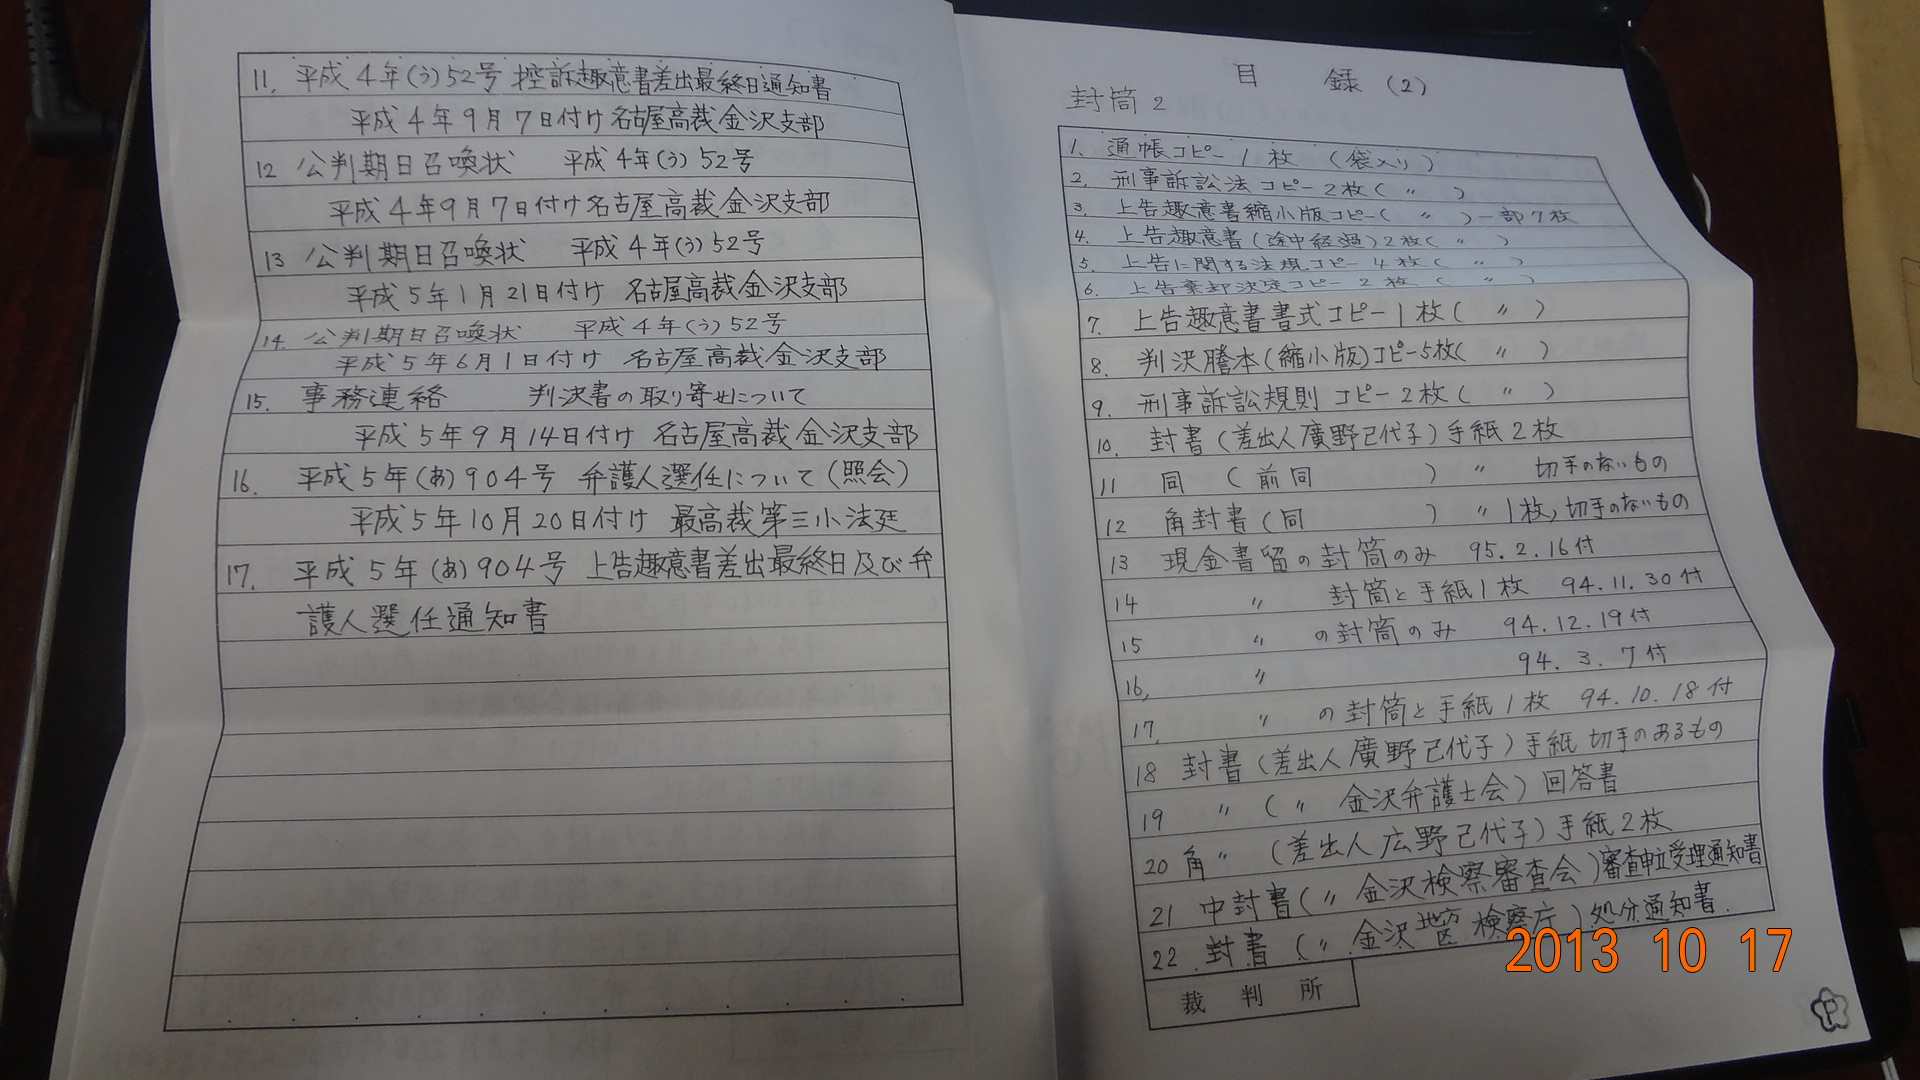 11. 平成4年(う)52号 控訴趣意書差出最終日通知書
平成4年9月7日付け 名古屋高裁金沢支部
12 公判期日召喚状 平成4年(う)52号
平成4年9月7日付け 名古屋高裁金沢支部
13 公判期日召喚状 平成4年(う)52号
平成5年1月21日付け 名古屋高裁金沢支部
14. 公判期日召喚状 平成4年(う)52号
平成5年6月1日付け 名古屋高裁金沢支部
15. 事務連絡 判決書の取り寄せについて
平成5年9月14日付け 名古屋高裁金沢支部
16. 平成5年(あ)904号 弁護人選任について(照会)
平成5年10月20日付け 最高裁第三小法廷
17. 平成5年(あ)904号 上告趣意書差出最終日及び弁
護人選任通知書
目 録 (2)
封筒 2
1. 通帳コピー1枚 (袋入り)
2. 刑事訴訟法コピー2枚( 〃 )
3. 上告趣意書縮小版コピー( 〃 )一部7枚
4. 上告趣意書(途中経過)2枚( 〃 )
5. 上告に関する法規コピー4枚( 〃 )
6. 上告棄却決定コピー2枚( 〃 )
7. 上告趣意書書式コピー1枚( 〃 )
8. 判決謄本(縮小版)コピー5枚( 〃 )
9. 刑事訴訟規則コピー2枚( 〃 )
10. 封書(差出人廣野己代子)手紙2枚
11 同 (前同 ) 〃 切手のないもの
12 角封書(同 ) 〃 1枚,切手のないもの
13 現金書留の封筒のみ 95.2.16付
14 〃 封筒と手紙1枚 94.11.30付
15 〃 の封筒のみ 94.12.19付
16, 〃 94.3.7付
17. 〃 の封筒と手紙1枚 94.10.18付
18 封書(差出人廣野己代子)手紙 切手のあるもの
19 〃 (〃 金沢弁護士会)回答書
20 角〃 (差出人広野己代子)手紙2枚
21 中封書(〃 金沢検察審査会)審査申立受理通知書
22. 封書 (〃 金沢地方区検察庁)処分通知書.
裁判所
2013 10 17
P